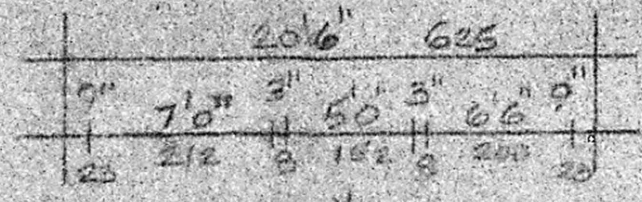 20'6" 625
9" 7'0" 3" 5'0" 3" 6'6" 9"
23 212 8 152 8 200 23